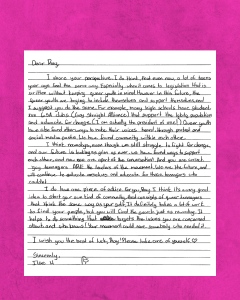 Dear Roy,
I share your perspective. I do think that even now, a lot of teens
your age feel the same way. Especially when it comes to legislation that is
written without keeping queer youth in mind. However in this future, the
queer youth are trying to include themselves and support themselves and
I suggest you do the same. For example, many high schools have student
run GSA clubs (Gay Straight Alliance) that support the lgbtq population
and advocate for change. (I am actually the president of mine!) Queer youth
have also found other ways to make their voices heard through protest and
social media posts. We have found community within each other.
I think nowadays, even though we still struggle to fight for change
and our future in building as well we have found ways to support
each other, and now are a part of the conversation! And you are correct
gay teenagers ARE the leaders of the movement. We are the future, and
will continue to educate ourselves and advocate for those teenagers who
couldn't.
I do have one piece of advice for you, Roy. I think it's a very good
idea to start your own kind of community that consists of queer teenagers
that think the same way as you. It definitely takes a lot of work
to find your people, but you will find the search just so rewarding. It
helps to do something that targets the issues you are concerned
about and who knows? Your movement could save somebody who needed it.
I wish you the best of luck, Roy! Please take care of yourself.
Sincerely,